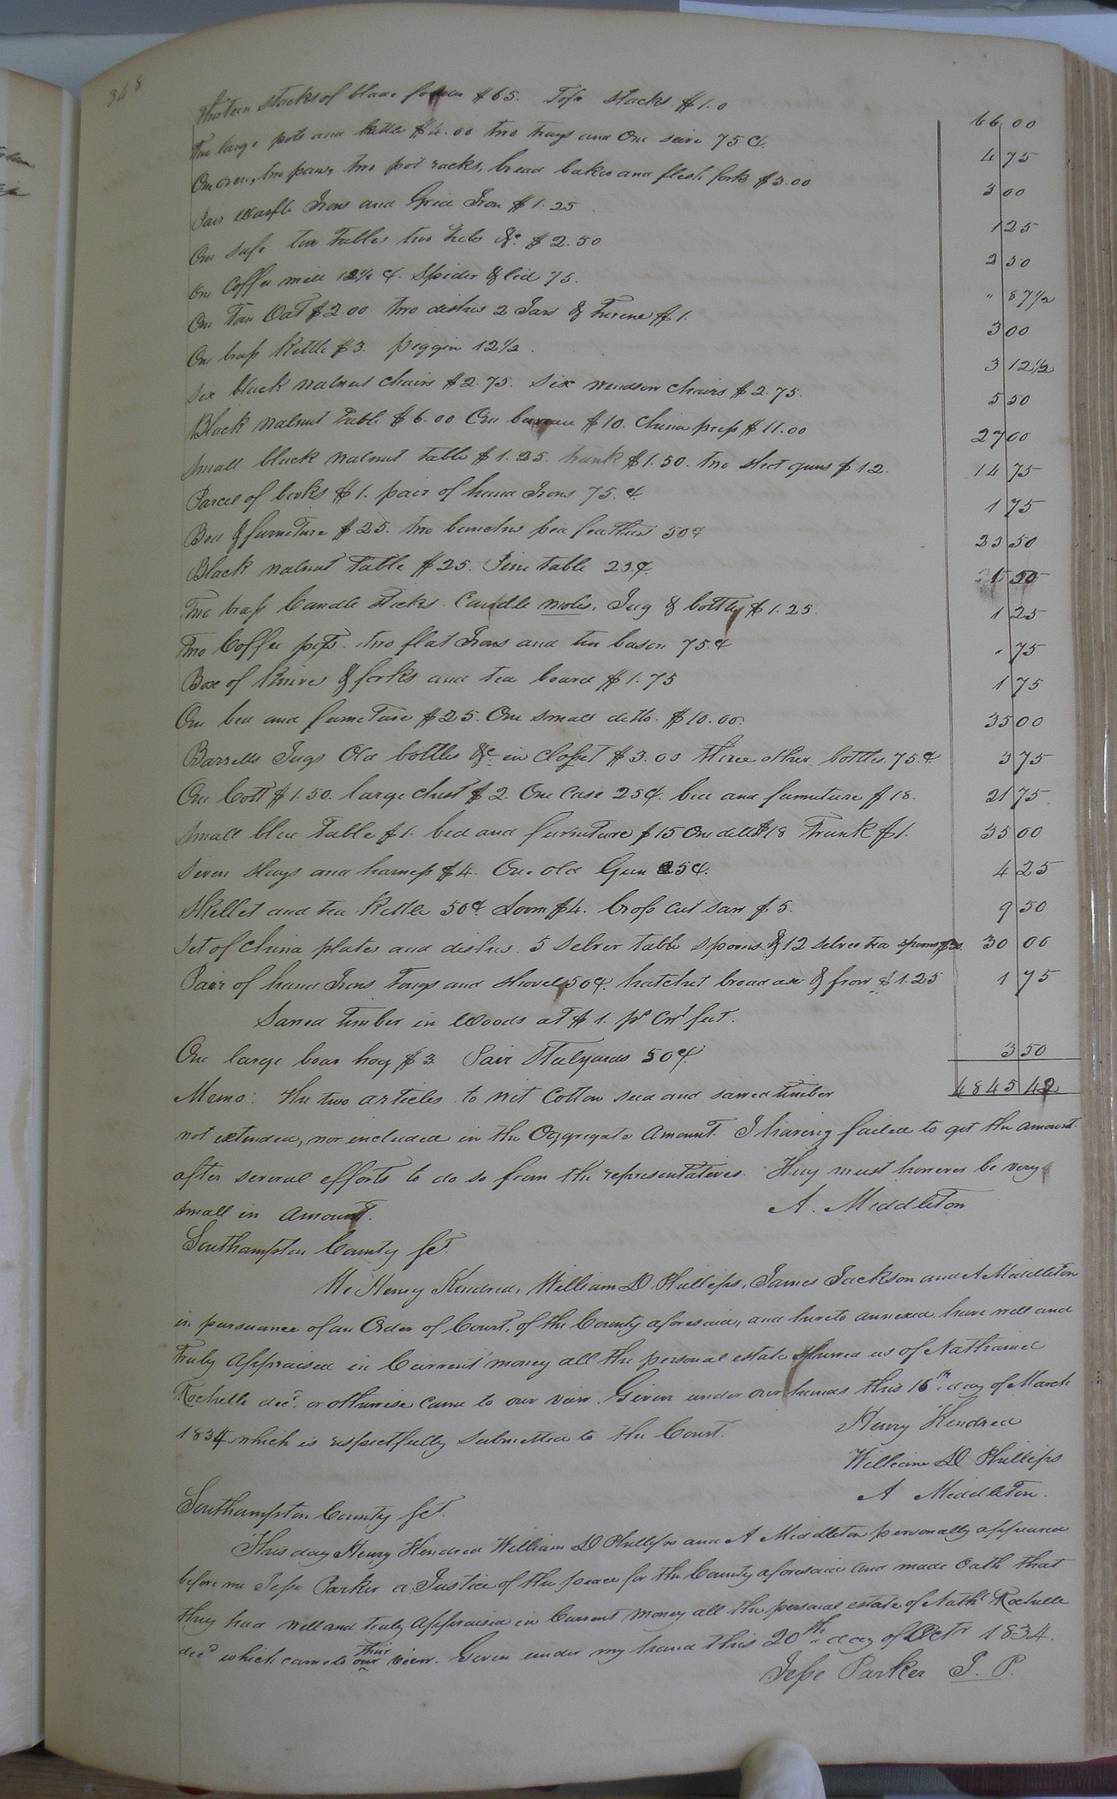 348
Thirteen stacks of blade fodder $65. Tops stacks $1.0 66 00
Two large pots and kettle $4.00 two trays and One seive 75 ¢. 4 75
One oven, two pans, two pot racks, bread baker and flesh fork $3.00 3 00
Pair waffle Irons and Grid Iron $1.25 1 25
One safe two tables two tubs &c. $2.50 2 50
One Coffee mill 12½ ¢. Spider & lid 75. " 87½
One Tan Vat $2.00 two dishes 2 Jars & Tureene $1. 3 00
One brass kettle $3. piggin 12½. 3 12½
Six black walnut chairs $2.75. Six windsor chairs $2.75. 5 50
Black walnut table $6.00 One bureau $10. China press $11.00 27 00
Small black walnut table $1.25. trunk $1.50. two shot guns $12. 14 75
Parcel of books $1. pair of hand Irons 75.¢ 1 75
Bed & furniture $25. two bunches pea feathers 50¢ 25 50
Black walnut table $25. Pine table 25¢. 50
Two brass Candle sticks. Candle molds, Jug & bottle $1.25. 1 25
Two Coffee pots. two flat Irons and tin bason 75.¢ " 75
Box of knives & forks and tea board $1.75 1 75
One bed and furniture $25. One small ditto. $10.00. 35 00
Barrells Jugs Old bottles &c. in closset $3.00 three other bottles 75.¢ 3 75
One Cott $1.50. large chest $2. One Case 25¢. bed and furniture $18. 21 75
Small blue table $1. bed and furniture $15 One ditto $18 Trunk $1. 35 00
Seven Slays and harness $4. One old Gun 25¢. 4 25
Skillet and tea kettle 50¢. Loom $4. Cross cut saw $5. 9 50
Set of china plates and dishes. 5 silver table spoons & 12 silver tea spoons $30. 30 00
Pair of hand Irons Tongs and shovel 50¢. hatchet broad axe & frow $1.25 1 75
Sawed timber in woods at $1. pr Cwt feet.
One large boar hog $3. Pair Stilyards 50¢ 3 50
Memo: the two articles to wit Cotton seed and sawed timber 6845 42
not extended, nor included in the Aggregate Amount. I having failed to get the amount
after several efforts to do so from the representatives. They must however be very
small in amount. A. Middleton
Southampton County Sct.
We Henry Kindred, William D Phillips, James Jackson and A Middleton
in pursuance of an Order of Court, of the County aforesaid, and hereto annexed have well and
truly Appraised in Current money all the personal estate shewed us of Nathaniel
Rochelle decd. or otherwise came to our view. Given under our hands this 16th. day of March
1834 which is respectfully submitted to the Court. Henry Kindred
William D Phillips
A Middleton.
Southampton County Sct.
This day Henry Kindred William D Phillips and A Middleton personally appeared
before me Jesse Parker a Justice of the peace for the County aforesaid and made Oath that
they had well and truly Appraised in Current Money all the personal estate of Nathl Rochelle
decd which came to our their view. Given under my hand this 20th. day of Octr 1834.
Jesse Parker J. P.